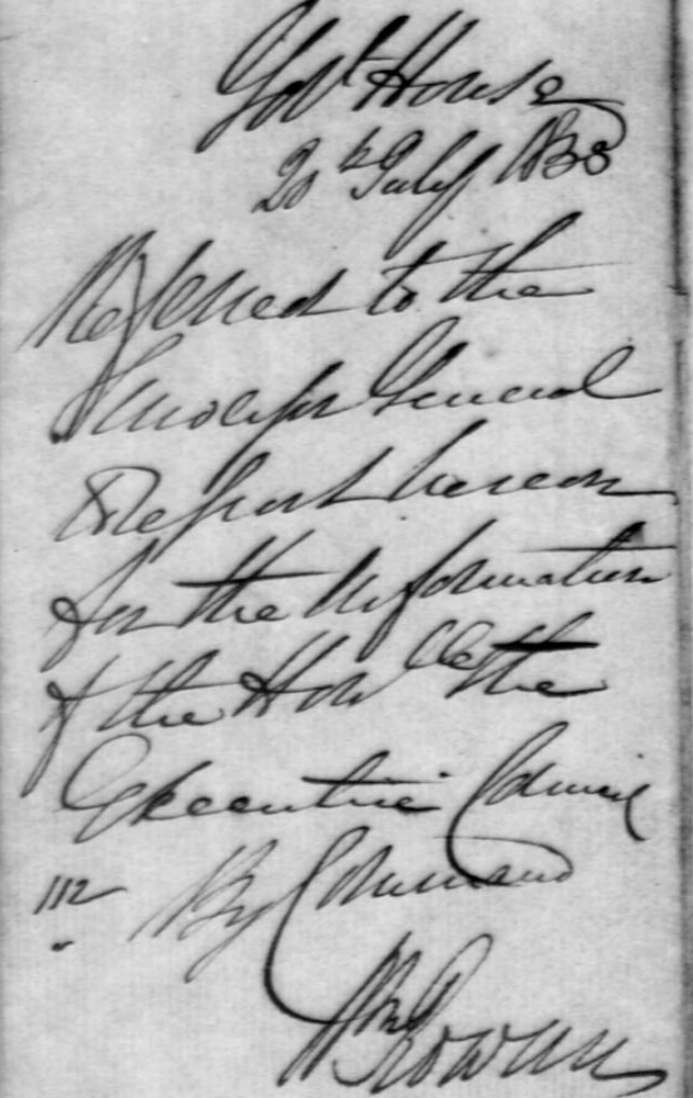 Govt House
20th July 1833
Referred to the
Surveyor General
Report hereon
for the Information
of the Honble the
Executive Council
112 By Command
Wm Rowan